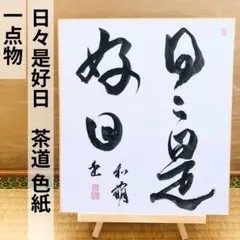 日々是好日　茶道 色紙
一点物
日々是
好日
和萌
書